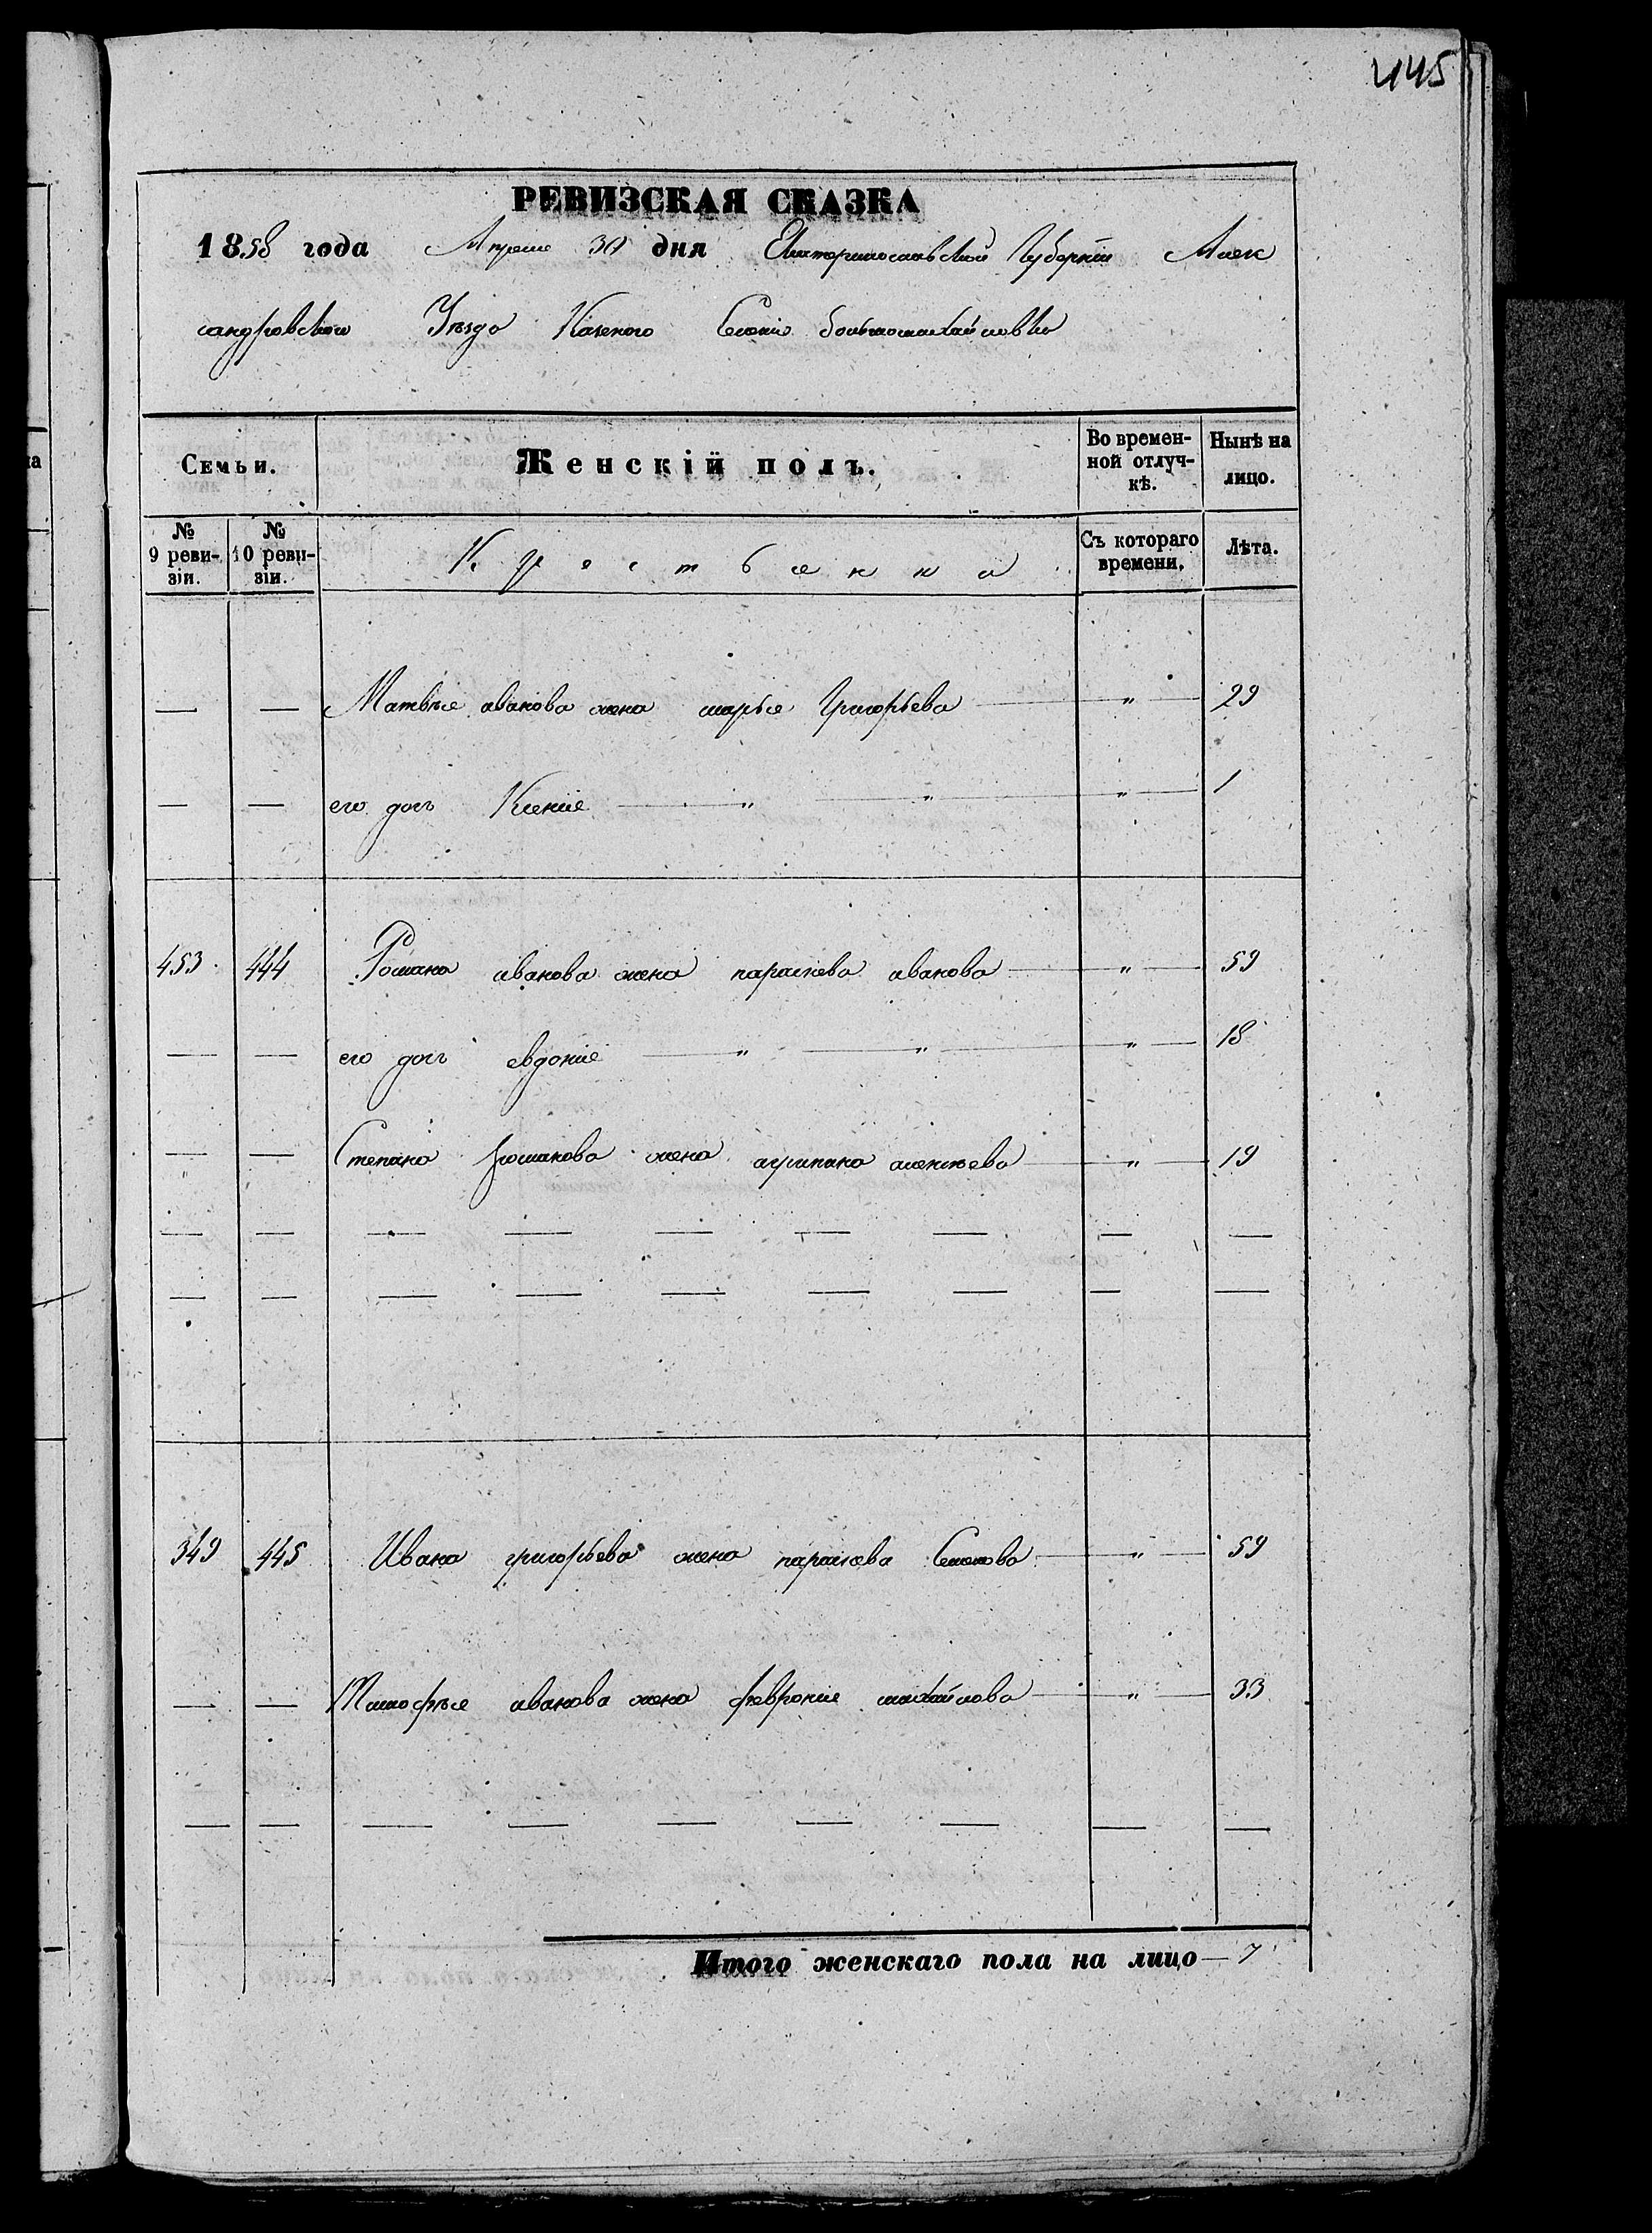 445
РЕВИЗСКАЯ СКАЗКА
1858 года Апреля 30 дня Екатеринославской Губерніи Алек
сандровского Уезда Казеного Селенія большомихайловки
Семьи. Женскій полъ. Во времен-ной отлуч-кѣ. Нынѣ на лицо.
№ 9 реви-зіи. № 10 реви-зіи. Крестьяне Съ котораго времени. Лѣта.
— — Матвѣя иванова жена марья Григорьева — " — 29
— — его дочь Ксения — " — " — " — 1
453 444 Романа иванова жена параскева иванова — " — 59
— — его дочь евдокия — " — " — " — 18
— — Степана романова жена агрипина — " — 19
— — — — — — — — —
— — — — — — — — —
349 445 Ивана григорьева жена параскева Семенова — " — 59
— — Тимофѣя иванова жена феврония михайлова — " — 33
— — — — — — — — —
Итого женскаго пола на лицо — 7